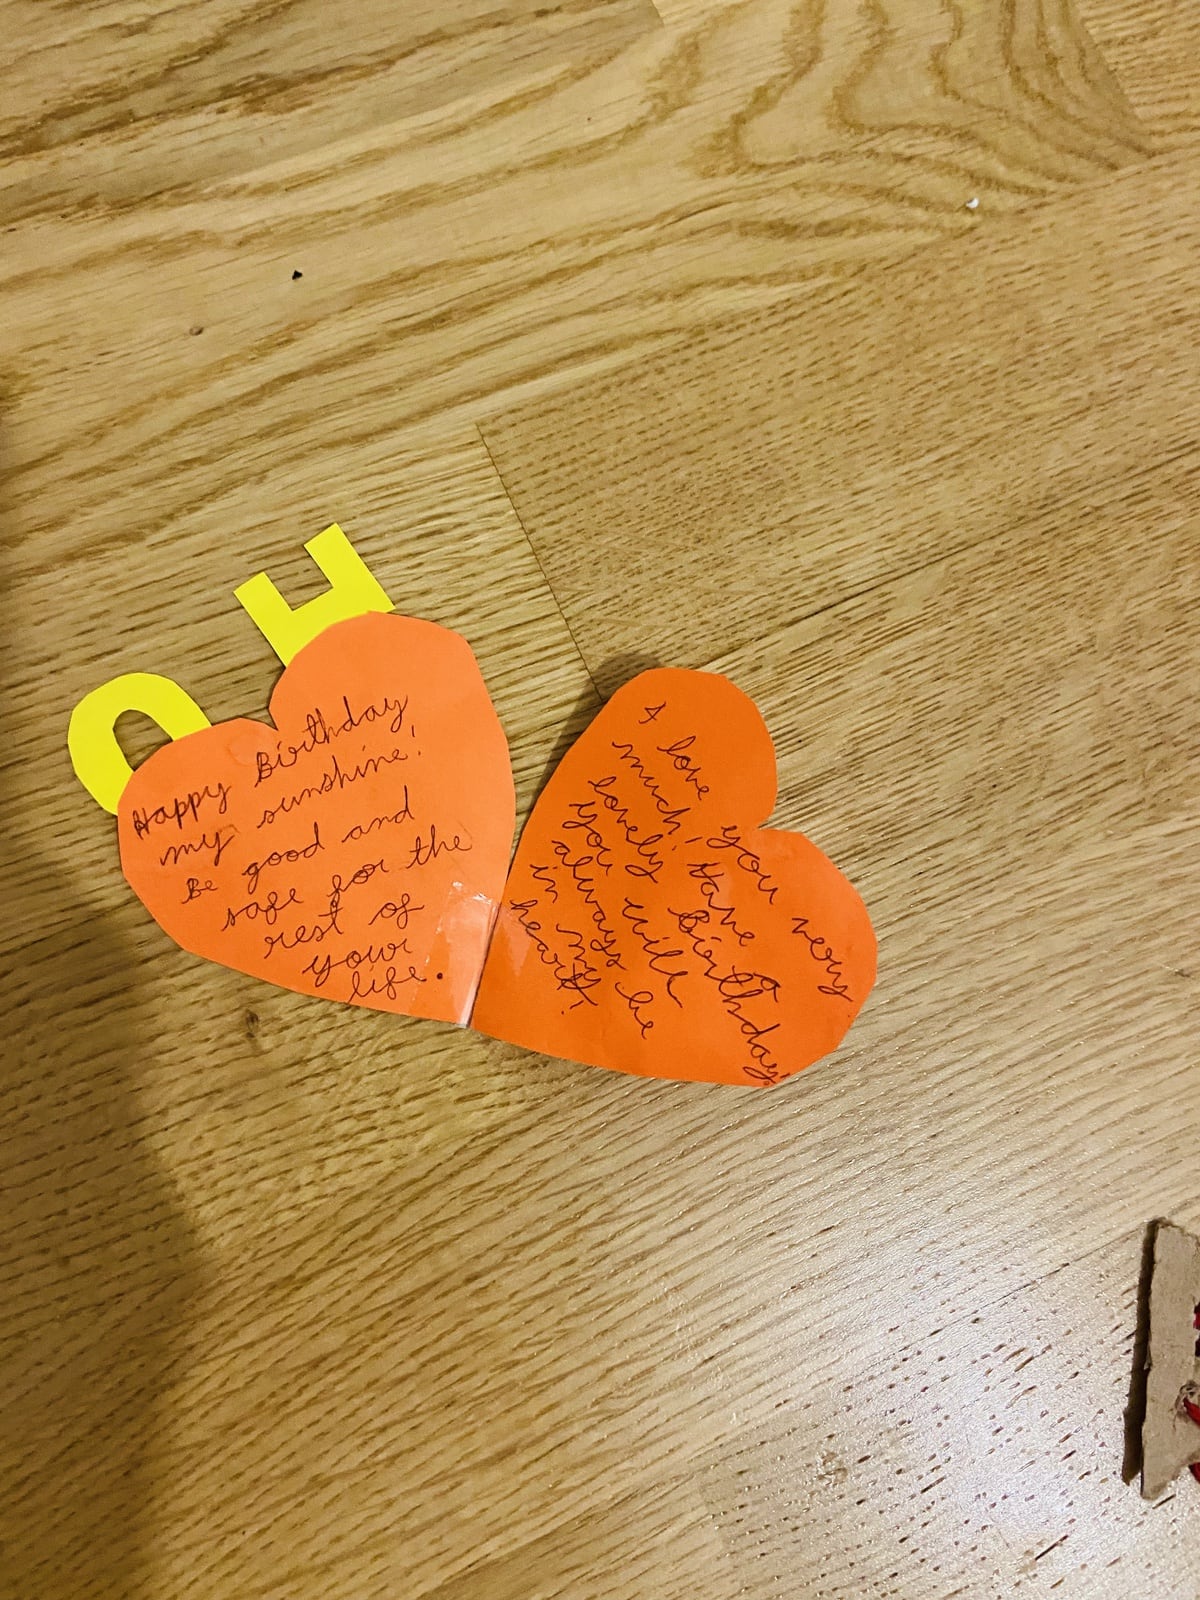 Happy Birthday
my sunshine!
Be good and
safe for the
rest of
your
life.
I love you very
much! Have a
lovely Birthday!
you will
always be
in my
heart!